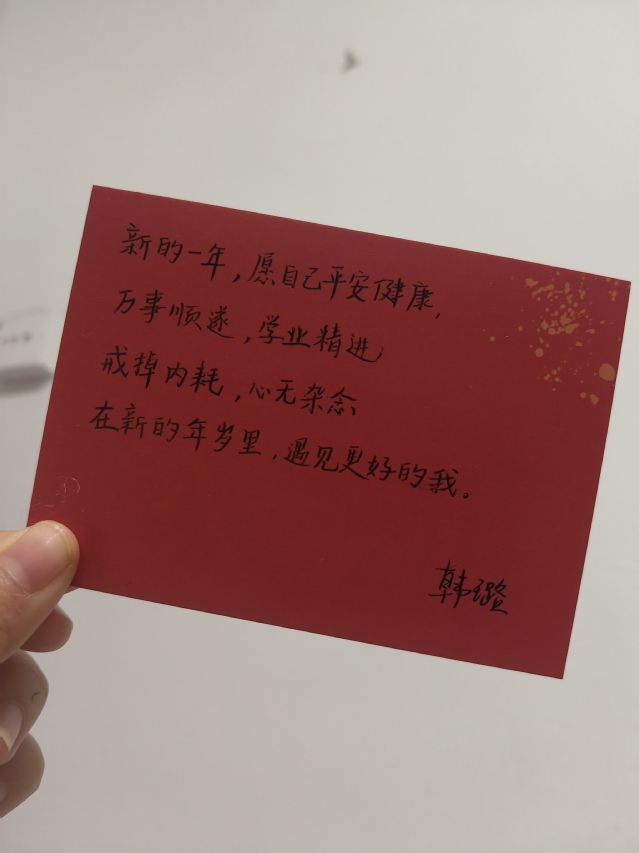 新的一年，愿自己平安健康，
万事顺遂，学业精进
戒掉内耗，心无杂念
在新的年岁里，遇见更好的我。
韩璐